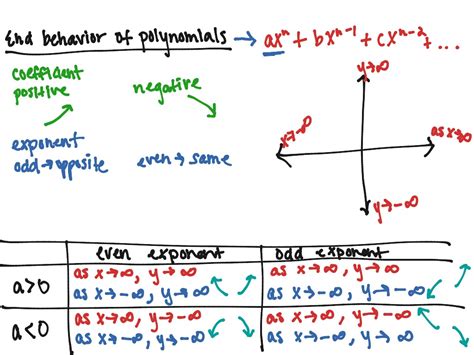 End behavior of polynomials → axⁿ + bxⁿ⁻¹ + cxⁿ⁻² + ...
coefficient
positive
negative
exponent
odd → opposite
even → same
y→∞
x→-∞
as x→∞
y→-∞
even exponent
odd exponent
a>0
as x→∞, y→∞
as x→-∞, y→∞
as x→∞, y→∞
as x→-∞, y→-∞
a<0
as x→∞, y→-∞
as x→-∞, y→-∞
as x→∞, y→-∞
as x→-∞, y→∞